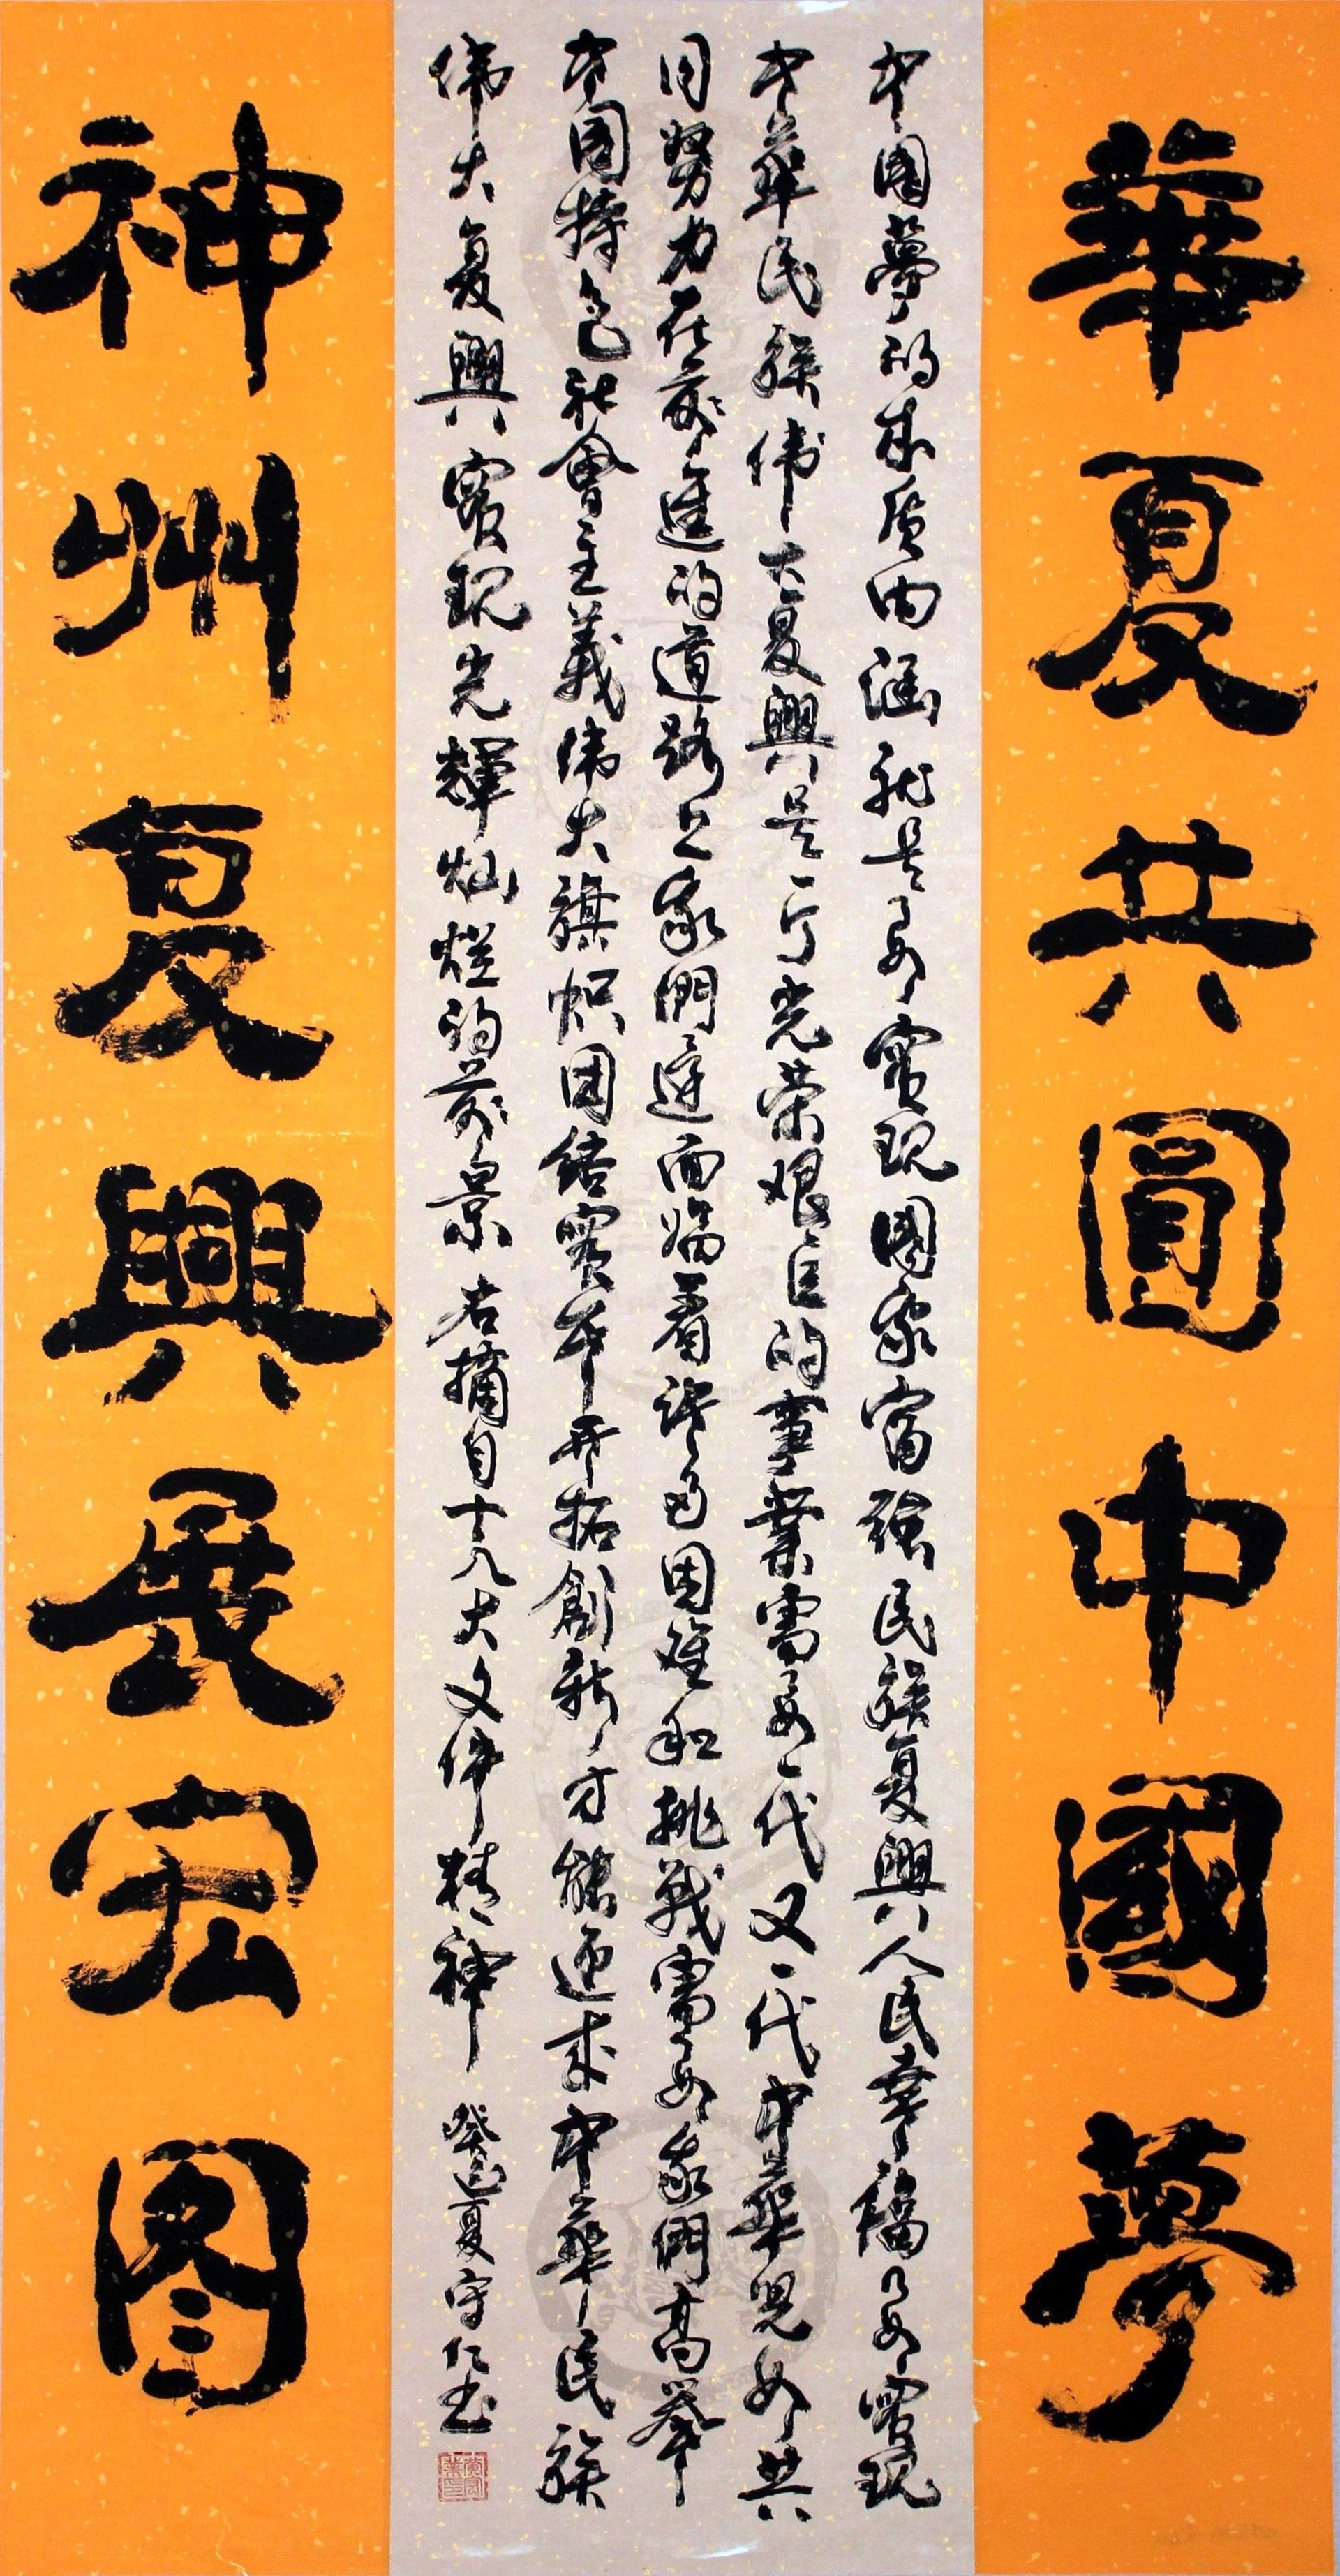 華夏共圓中國夢
中國夢的本质内涵就是要實現國家富强民族复興人民幸福要實現
中華民族偉大复興是一个光荣艰巨的事業需要一代又一代中華児女共
同努力在前進的道路上我們還面臨着許多困难和挑战需要我們高举
中国特色社會主義偉大旗帜团結實干开拓創新方能迎来中華民族
偉大复興實現光輝灿烂的前景 右摘自十八大文件精神 癸巳夏守仁书
神州复興展宏图